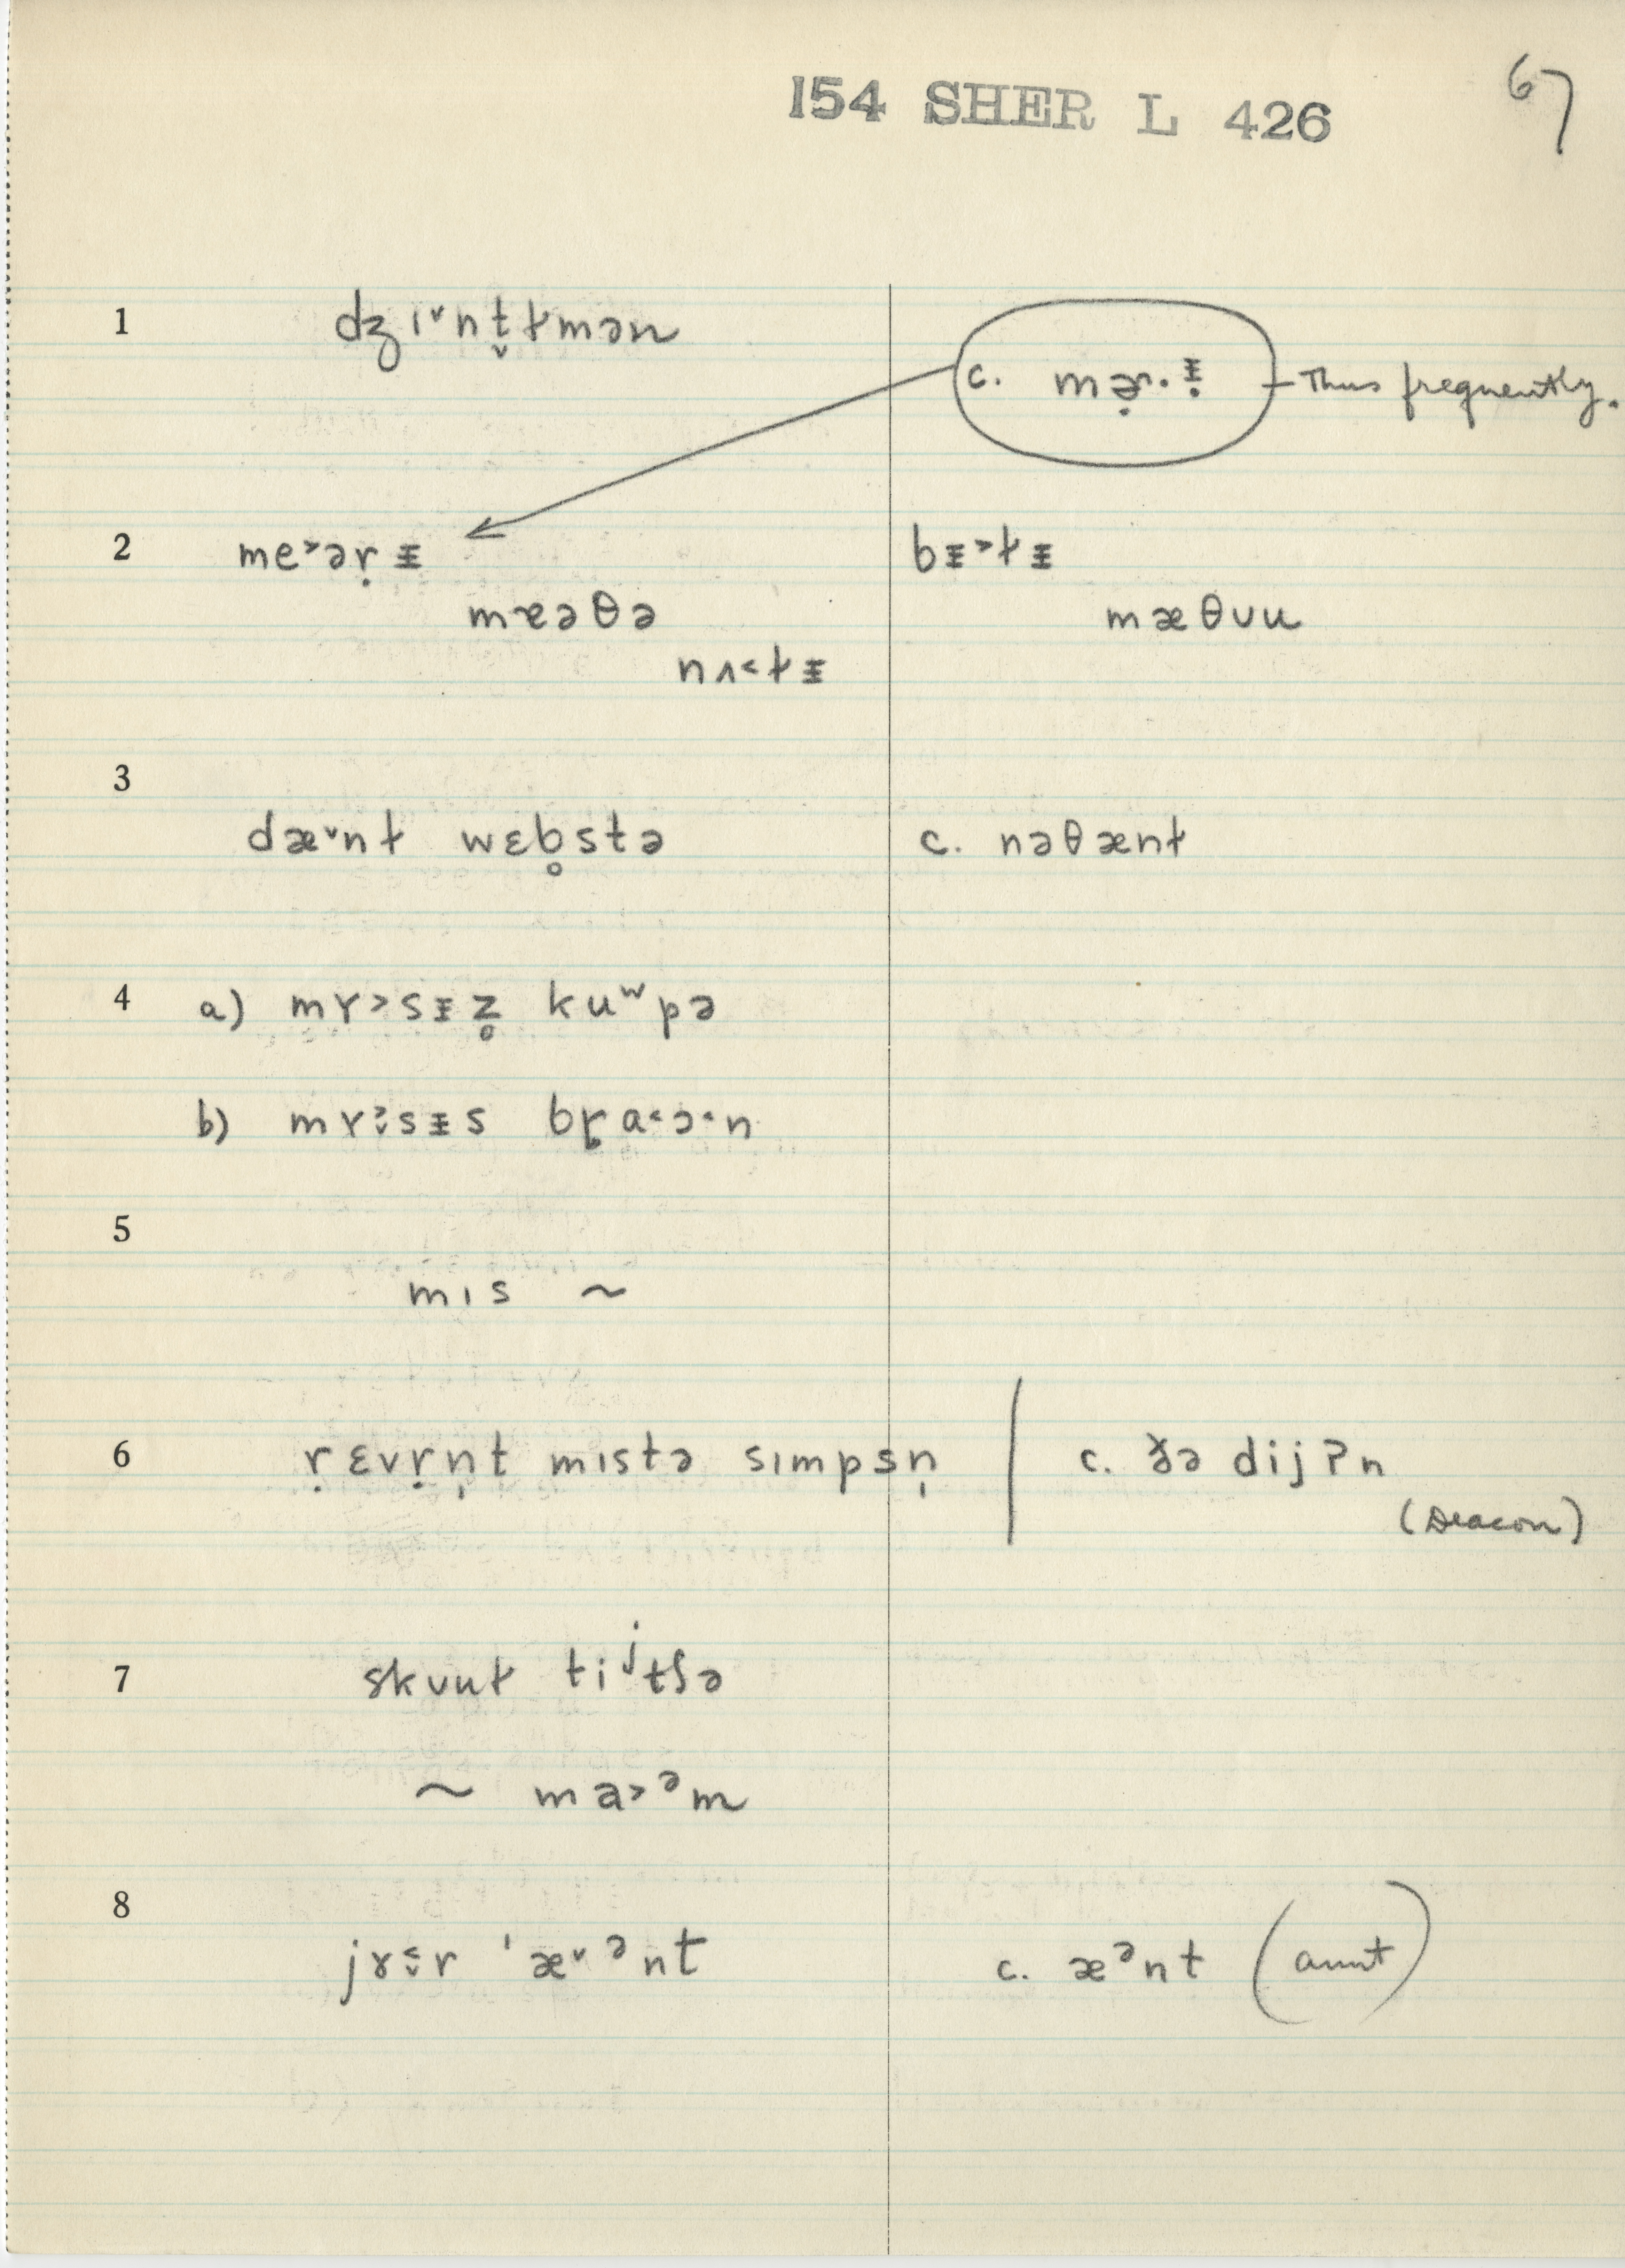 154 SHER L 426
67
1 dʒɪ˅nt̬ɫmən
c. mə̣r·ɪ̵̣ — Thus frequently.
2 me˃əṛɪ̵ bɪ̵˃ɫɪ̵
mæəθə mæθᴜu
nʌ˂ɫɪ̵
3
dæ˅nɫ wɛb̥stə c. nəθænɫ
4 a) mɤ˃sɪ̵z̥ kuʷpə
b) mɤ˃̬sɪ̵s bɽa˂ɔ˂n
5
mɪs ~
6 ṛɛvṛn̩t mɪstə sɪmpsn̩ | c. ðə dijʔn
(Deacon)
7 skᴜuɫ tiʲtʃə
~ ma˃ᵊm
8
jɤ˂̬r ˈæ˅ᵊnt c. æᵊnt (aunt)